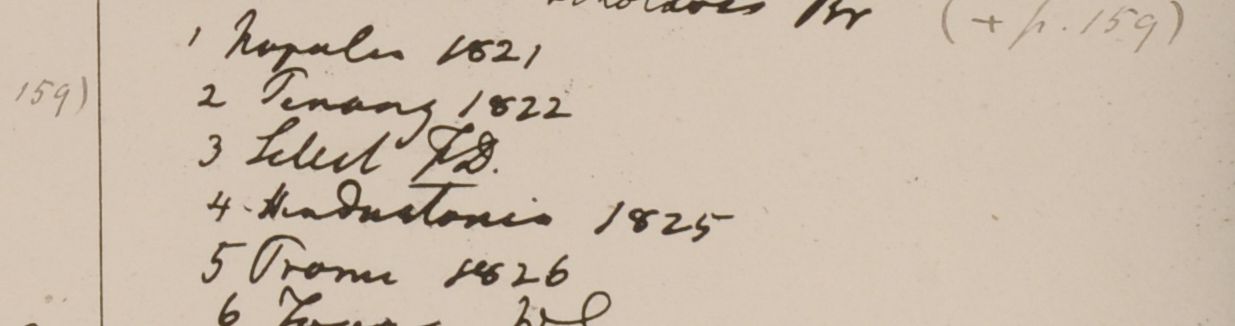 Br (+ p. 159)
1 Napalia 1821
159)
2 Penang 1822
3 Select F.D.
4. Hindustania 1825
5 Prome 1826
6